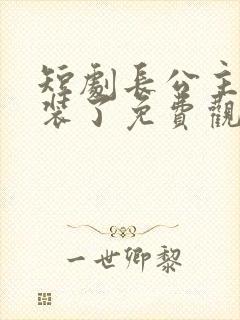 短劇長公主
裝了免費觀
一世卿黎